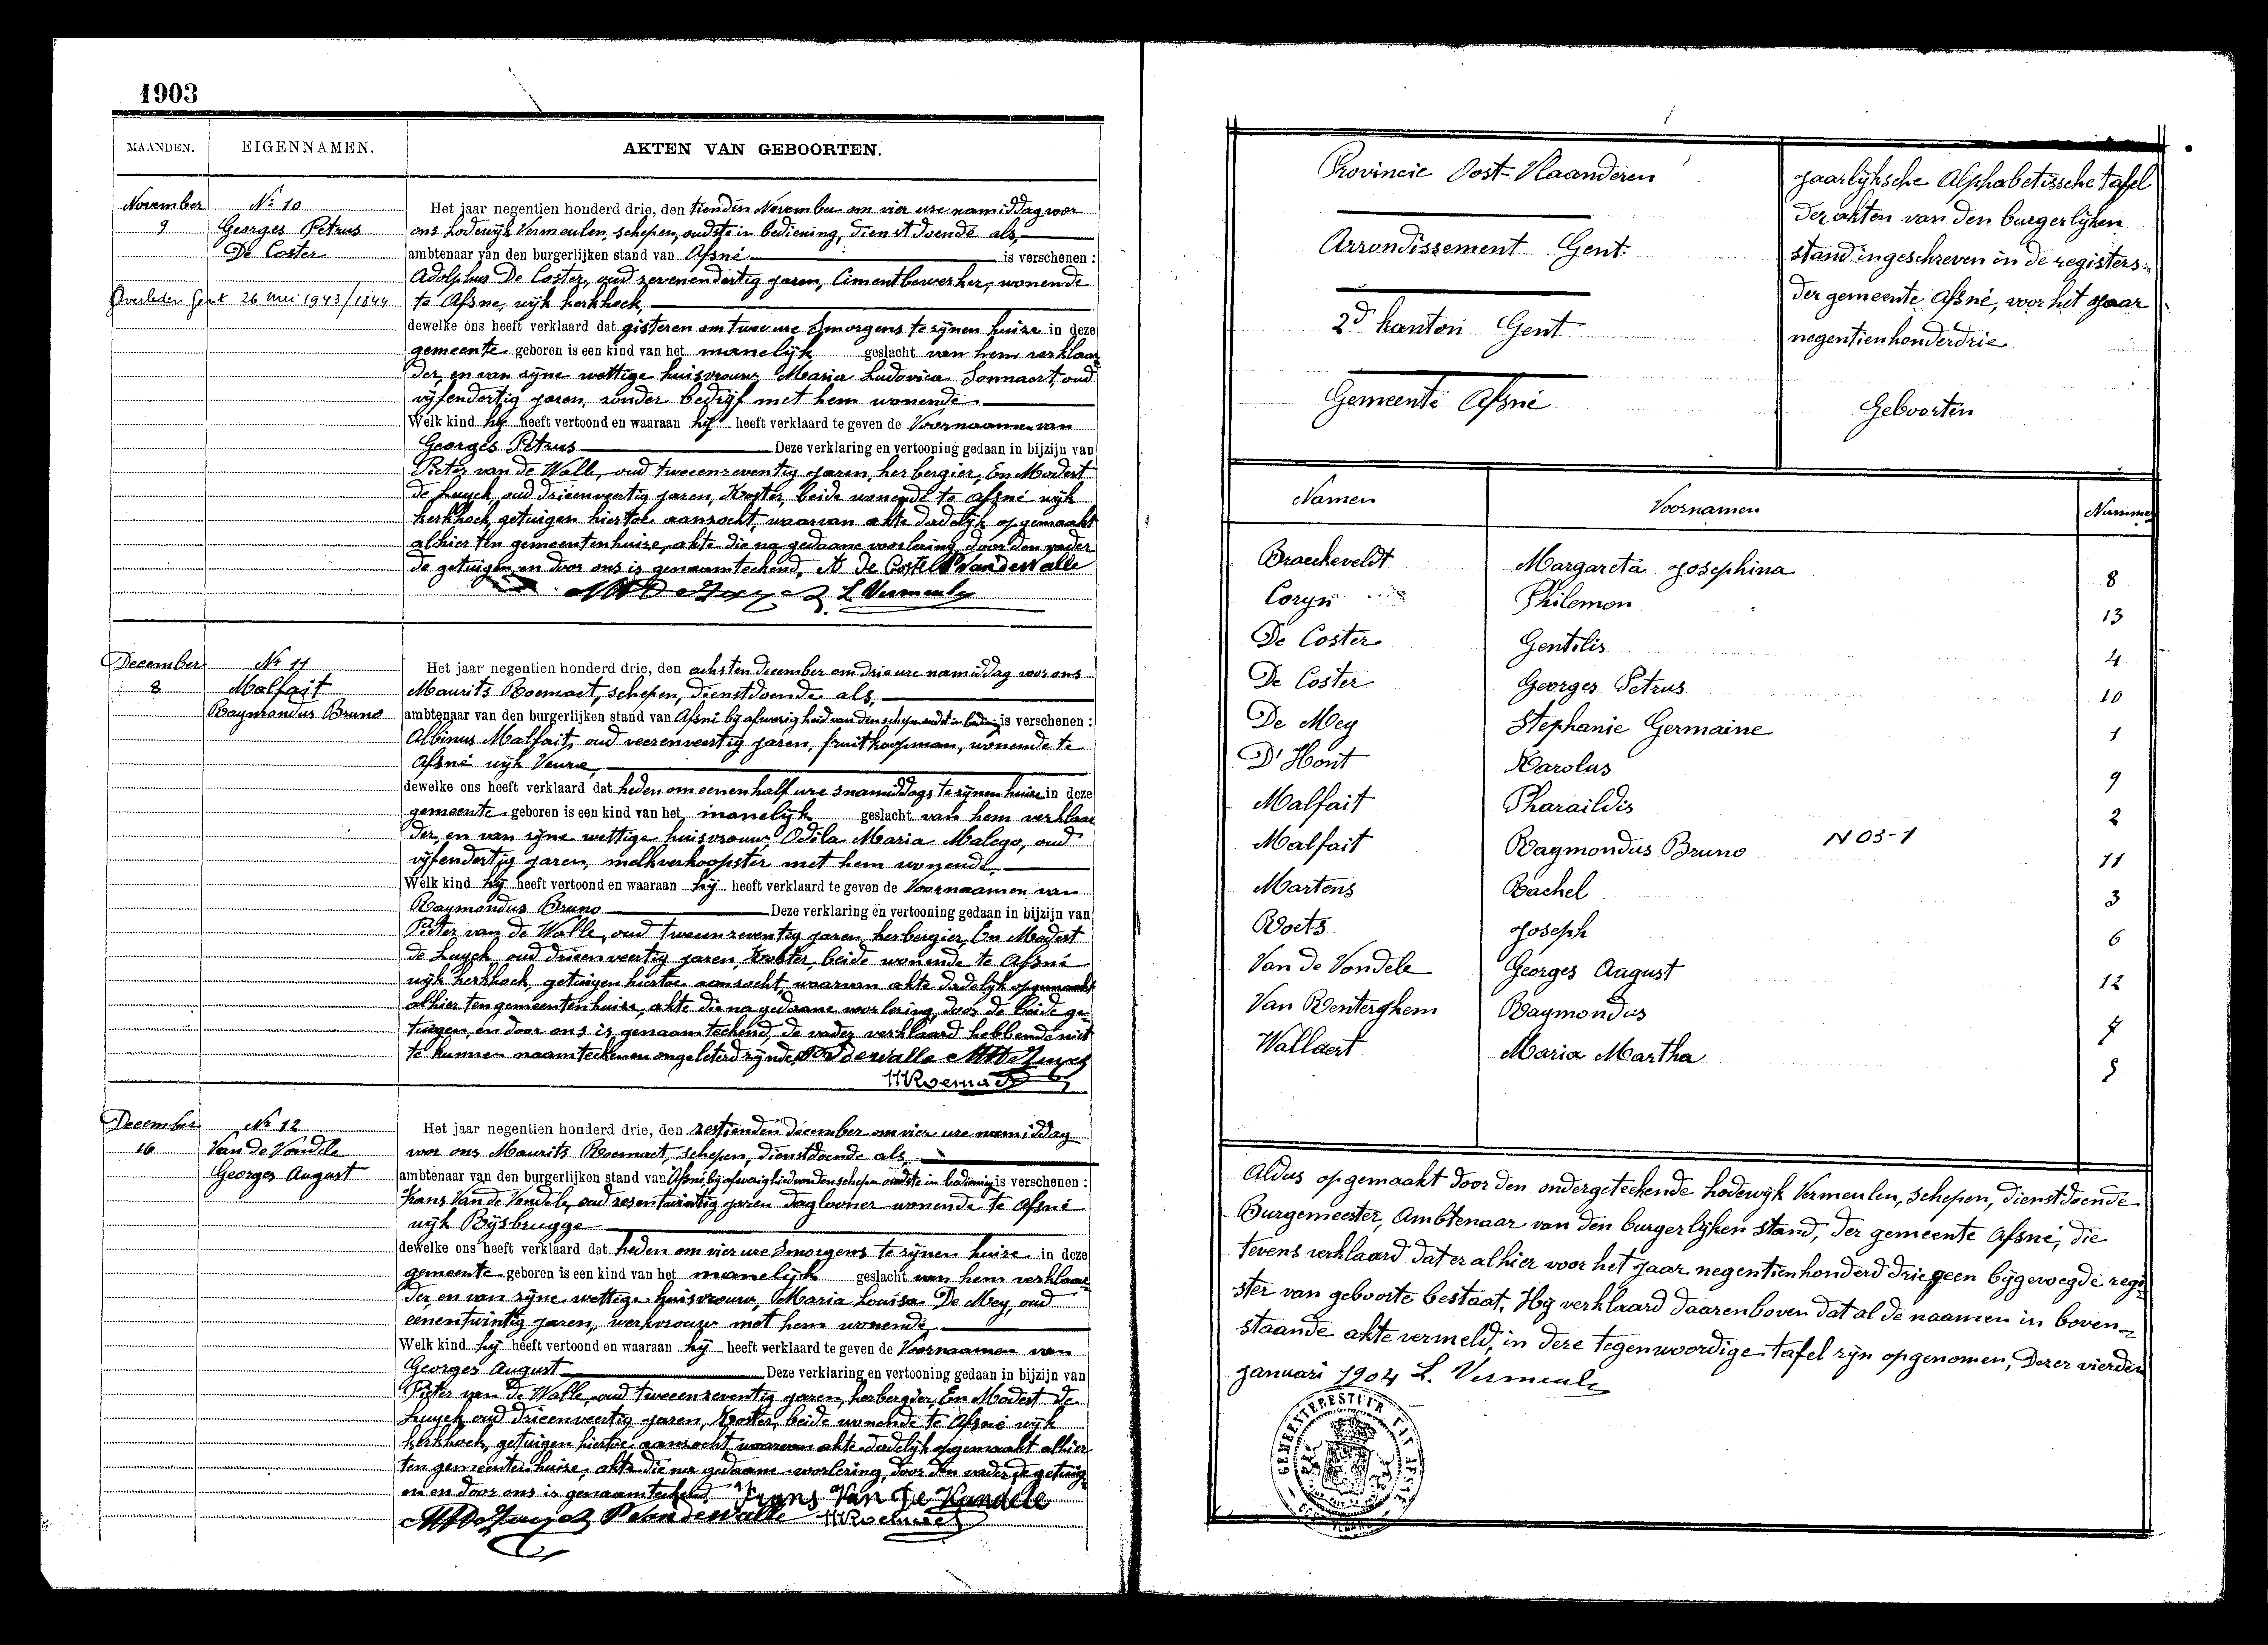 1903
MAANDEN. EIGENNAMEN. AKTEN VAN GEBOORTEN.
November Nr 10
9 Georges Petrus
De Coster
Overleden Gent 26 mei 1943/1844
Het jaar negentien honderd drie, den tienden November om vier ure namiddag voor
ons Lodewijk Vermeulen, schepen, oudste in bediening, dienstdoende als,
ambtenaar van den burgerlijken stand van Afsné is verschenen :
Adolphus De Coster, oud zevenendertig jaren, Cimentbewerker, wonende
te Afsne, wijk kerkhoek,
dewelke ons heeft verklaard dat gisteren om twee ure smorgens te zijnen huize in deze
gemeente geboren is een kind van het manelijk geslacht van hem verklaar
der, en van zijne wettige huisvrouw Maria Ludovica Sonnaert, oud
vijfendertig jaren, zonder bedrijf met hem wonende.
Welk kind hij heeft vertoond en waaraan hij heeft verklaard te geven de Voornaamen van
Georges Petrus Deze verklaring en vertooning gedaan in bijzijn van
Pieter van de Walle, oud tweeenzeventig jaren, herbergier, En Modest
de Luyck, oud drieenveertig jaren, Koster, beide wonende te Afsné wijk
kerkhoek, getuigen hiertoe aanzocht, waarvan akte dadelijk opgemaakt
alhier ten gemeentenhuize, akte die na gedaane voorlezing, door den vader
de getuigen, en door ons is genaamteekend, A De Coster P VandeWalle
L Vermeulen
December Nr 11
8 Malfait
Raymondus Bruno
Het jaar negentien honderd drie, den achsten december om drie ure namiddag voor ons
Maurits Roemaet, schepen, dienstdoende als,
ambtenaar van den burgerlijken stand van Afsné bij afwezigheid van den schepen oudste in bediening is verschenen :
Albinus Malfait, oud veerenveertig jaren, fruitkoopman, wonende te
Afsné wijk Veure,
dewelke ons heeft verklaard dat heden om eenen half ure snamiddags te zijnen huize in deze
gemeente geboren is een kind van het manelijk geslacht van hem verklaar
der, en van zijne wettige huisvrouw Odila Maria Malego, oud
vijfendertig jaren, melkverkoopster met hem wonende,
Welk kind hij heeft vertoond en waaraan hij heeft verklaard te geven de Voornaamen van
Raymondus Bruno Deze verklaring en vertooning gedaan in bijzijn van
Pieter van de Walle, oud tweeenzeventig jaren, herbergier, En Modest
de Luyck oud drieenveertig jaren, Koster, beide wonende te Afsné
wijk kerkhoek, getuigen hiertoe aanzocht, waarvan akte dadelijk opgemaakt
alhier ten gemeentenhuize, akte die na gedaane voorlezing, door de beide ge
tuigen, en door ons is genaamteekend, de vader verklaard hebbende niet
te kunnen naamteekenen ongeleterd zijnde. P VandeWalle
MRoemaet
December Nr 12
16 Van de Vondele
Georges August
Het jaar negentien honderd drie, den zestienden december om vier ure namiddag
voor ons Maurits Roemaet, schepen, dienstdoende als,
ambtenaar van den burgerlijken stand van Afsné, bij afwezigheid van den schepen oudste in bediening is verschenen :
Frans Van de Vondele, oud zesentwintig jaren daglooner wonende te Afsné
wijk Rijsbrugge
dewelke ons heeft verklaard dat heden om vier ure smorgens te zijnen huize in deze
gemeente geboren is een kind van het manelijk geslacht van hem verklaar
der, en van zijne wettige huisvrouw, Maria Louisa De Mey, oud
eenentwintig jaren, werkvrouw met hem wonende
Welk kind hij heeft vertoond en waaraan hij heeft verklaard te geven de Voornaamen van
Georges August Deze verklaring en vertooning gedaan in bijzijn van
Pieter van de Walle, oud tweeenzeventig jaren, herbergier, En Modest de
Luyck, oud drieenveertig jaren, Koster, beide wonende te Afsné wijk
kerkhoek, getuigen hiertoe aanzocht, waarvan akte dadelijk opgemaakt alhier
ten gemeentenhuize, akte die na gedaane voorlezing, door den vader, de getuig
en en door ons is genaamteekend Frans Van De Vandele
P VandeWalle MRoemaet
Provincie Oost-Vlaanderen
Arrondissement Gent
2d kanton Gent
Gemeente Afsné
Jaarlijksche Alphabetissche tafel
der akten van den burgerlijken
stand ingeschreven in de registers
der gemeente Afsné, voor het Jaar
negentienhonderddrie
Geboorten
Namen Voornamen Nummer
Braeckeveldt Margareta Josephina 8
Coryn Philemon 13
De Coster Gentilis 4
De Coster Georges Petrus 10
De Mey Stephanie Germaine 1
D'Hont Karolus 9
Malfait Pharaildis 2
Malfait Raymondus Bruno N 03-1 11
Martens Rachel 3
Roets Joseph 6
Van de Vondele Georges August 12
Van Renterghem Raymondus 7
Wallaert Maria Martha 5
Aldus opgemaakt door den ondergeteekende Lodewijk Vermeulen, schepen, dienstdoende
Burgemeester, Ambtenaar van den burgerlijken stand, der gemeente Afsné, die
tevens verklaard dat er alhier voor het Jaar negentienhonderd drie geen bijgevoegde regi
ster van geboorte bestaat, Hij verklaard daarenboven dat al de naamen in boven=
staande akte vermeld, in deze tegenwoordige tafel zijn opgenomen, Dezer vierden
Januari 1904 L. Vermeulen
GEMEENTEBESTUUR VAN AFSNÉ